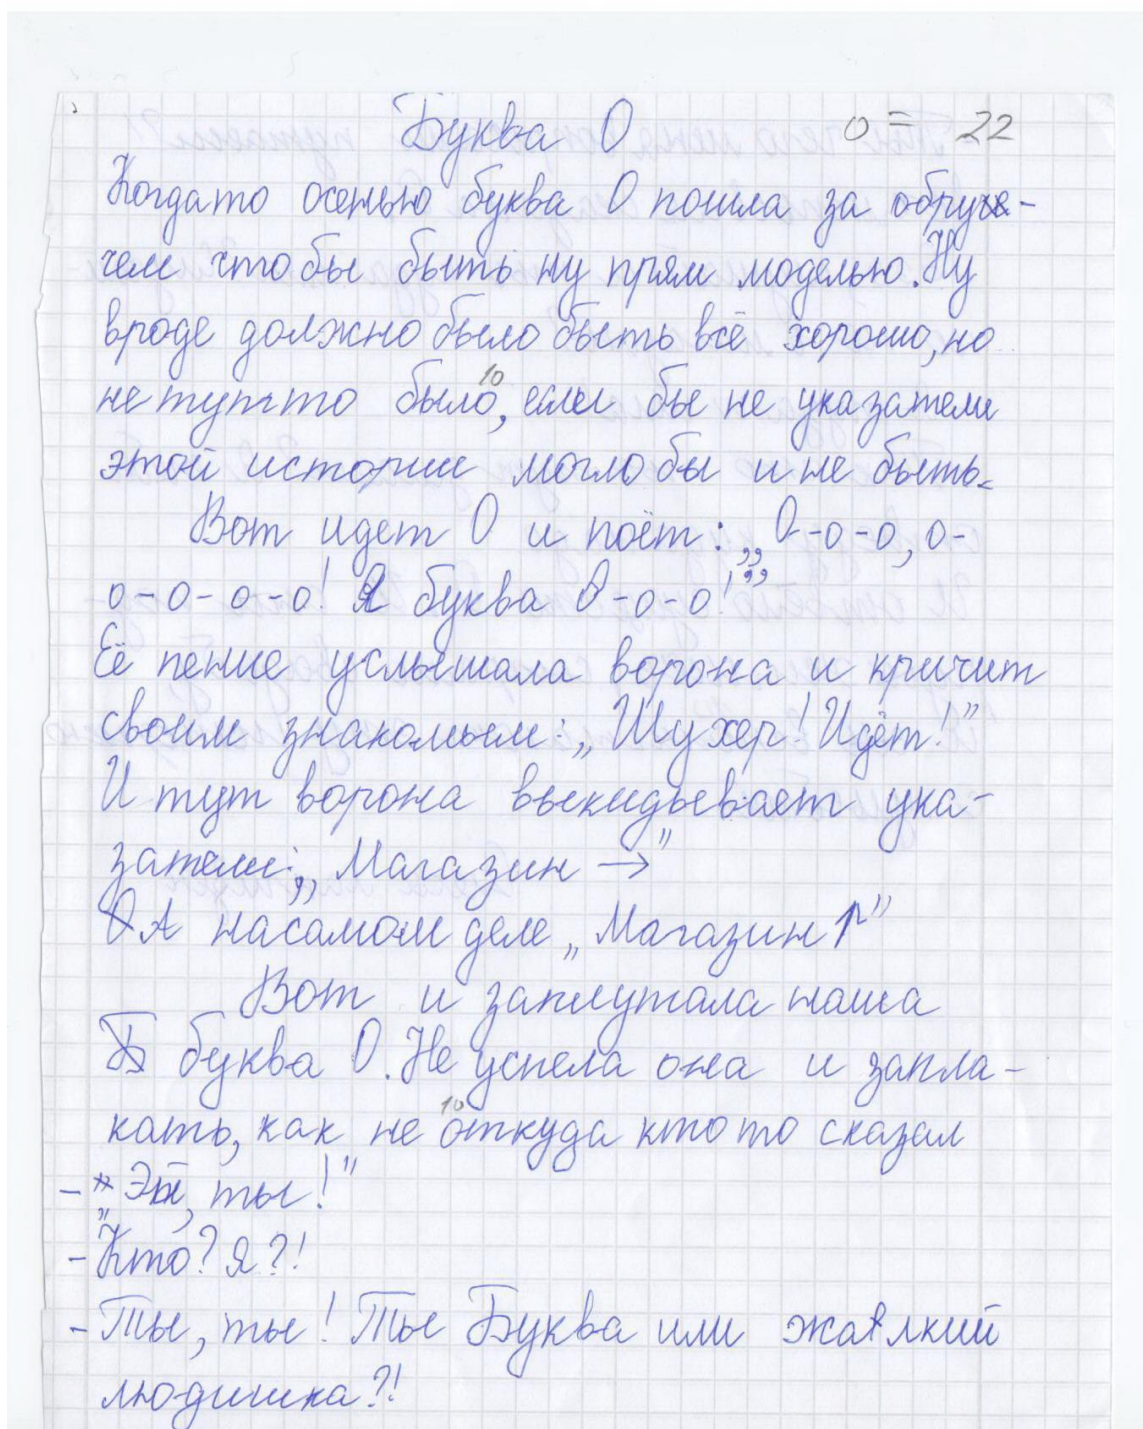 Буква О   о = 22
Когдато осенью буква О пошла за обруче-
чем чтобы быть ну прям моделью. Ну
вроде должно было быть всё хорошо, но
не тутто было, если бы не указатели
10
этой истории могло бы и не быть.
Вот идет О и поёт: „О-о-о, о-
о-о-о-о! Я буква О-о-о!”
Её пение услышала ворона и кричит
своим знакомым: „Шухер! Идёт!”
И тут ворона выкидывает ука-
затели: „Магазин →”
А насамом деле „Магазин ↑”
Вот и заплутала наша
буква О. Не успела она и запла-
10
кать, как не откуда ктото сказал
- „Эй, ты!”
- Кто? Я?!
- Ты, ты! Ты Буква или жалкий
людишка?!